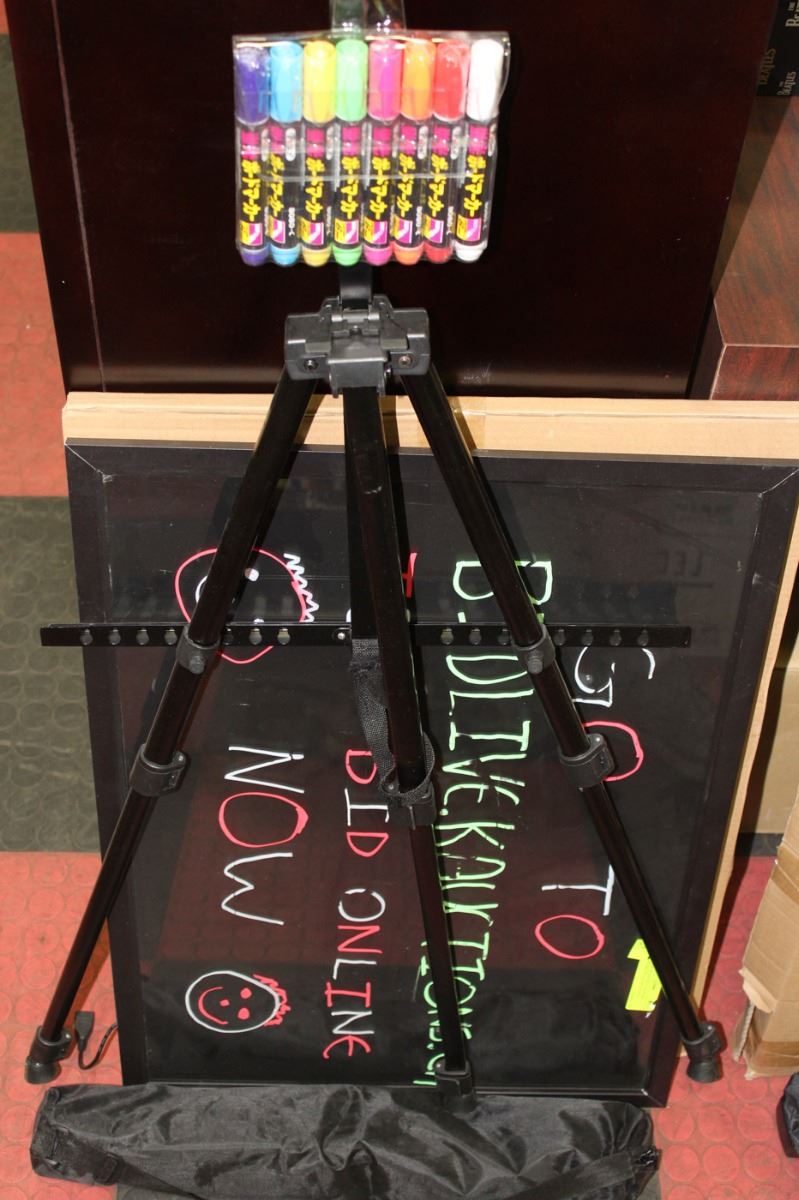 ボードマーカー
ボードマーカー
ボードマーカー
ボードマーカー
ボードマーカー
ボードマーカー
ボードマーカー
ボードマーカー
GO TO
BIDLIVE.KAUKTIONS.CA
TO BID ONLINE
NOW
THE BEATLES